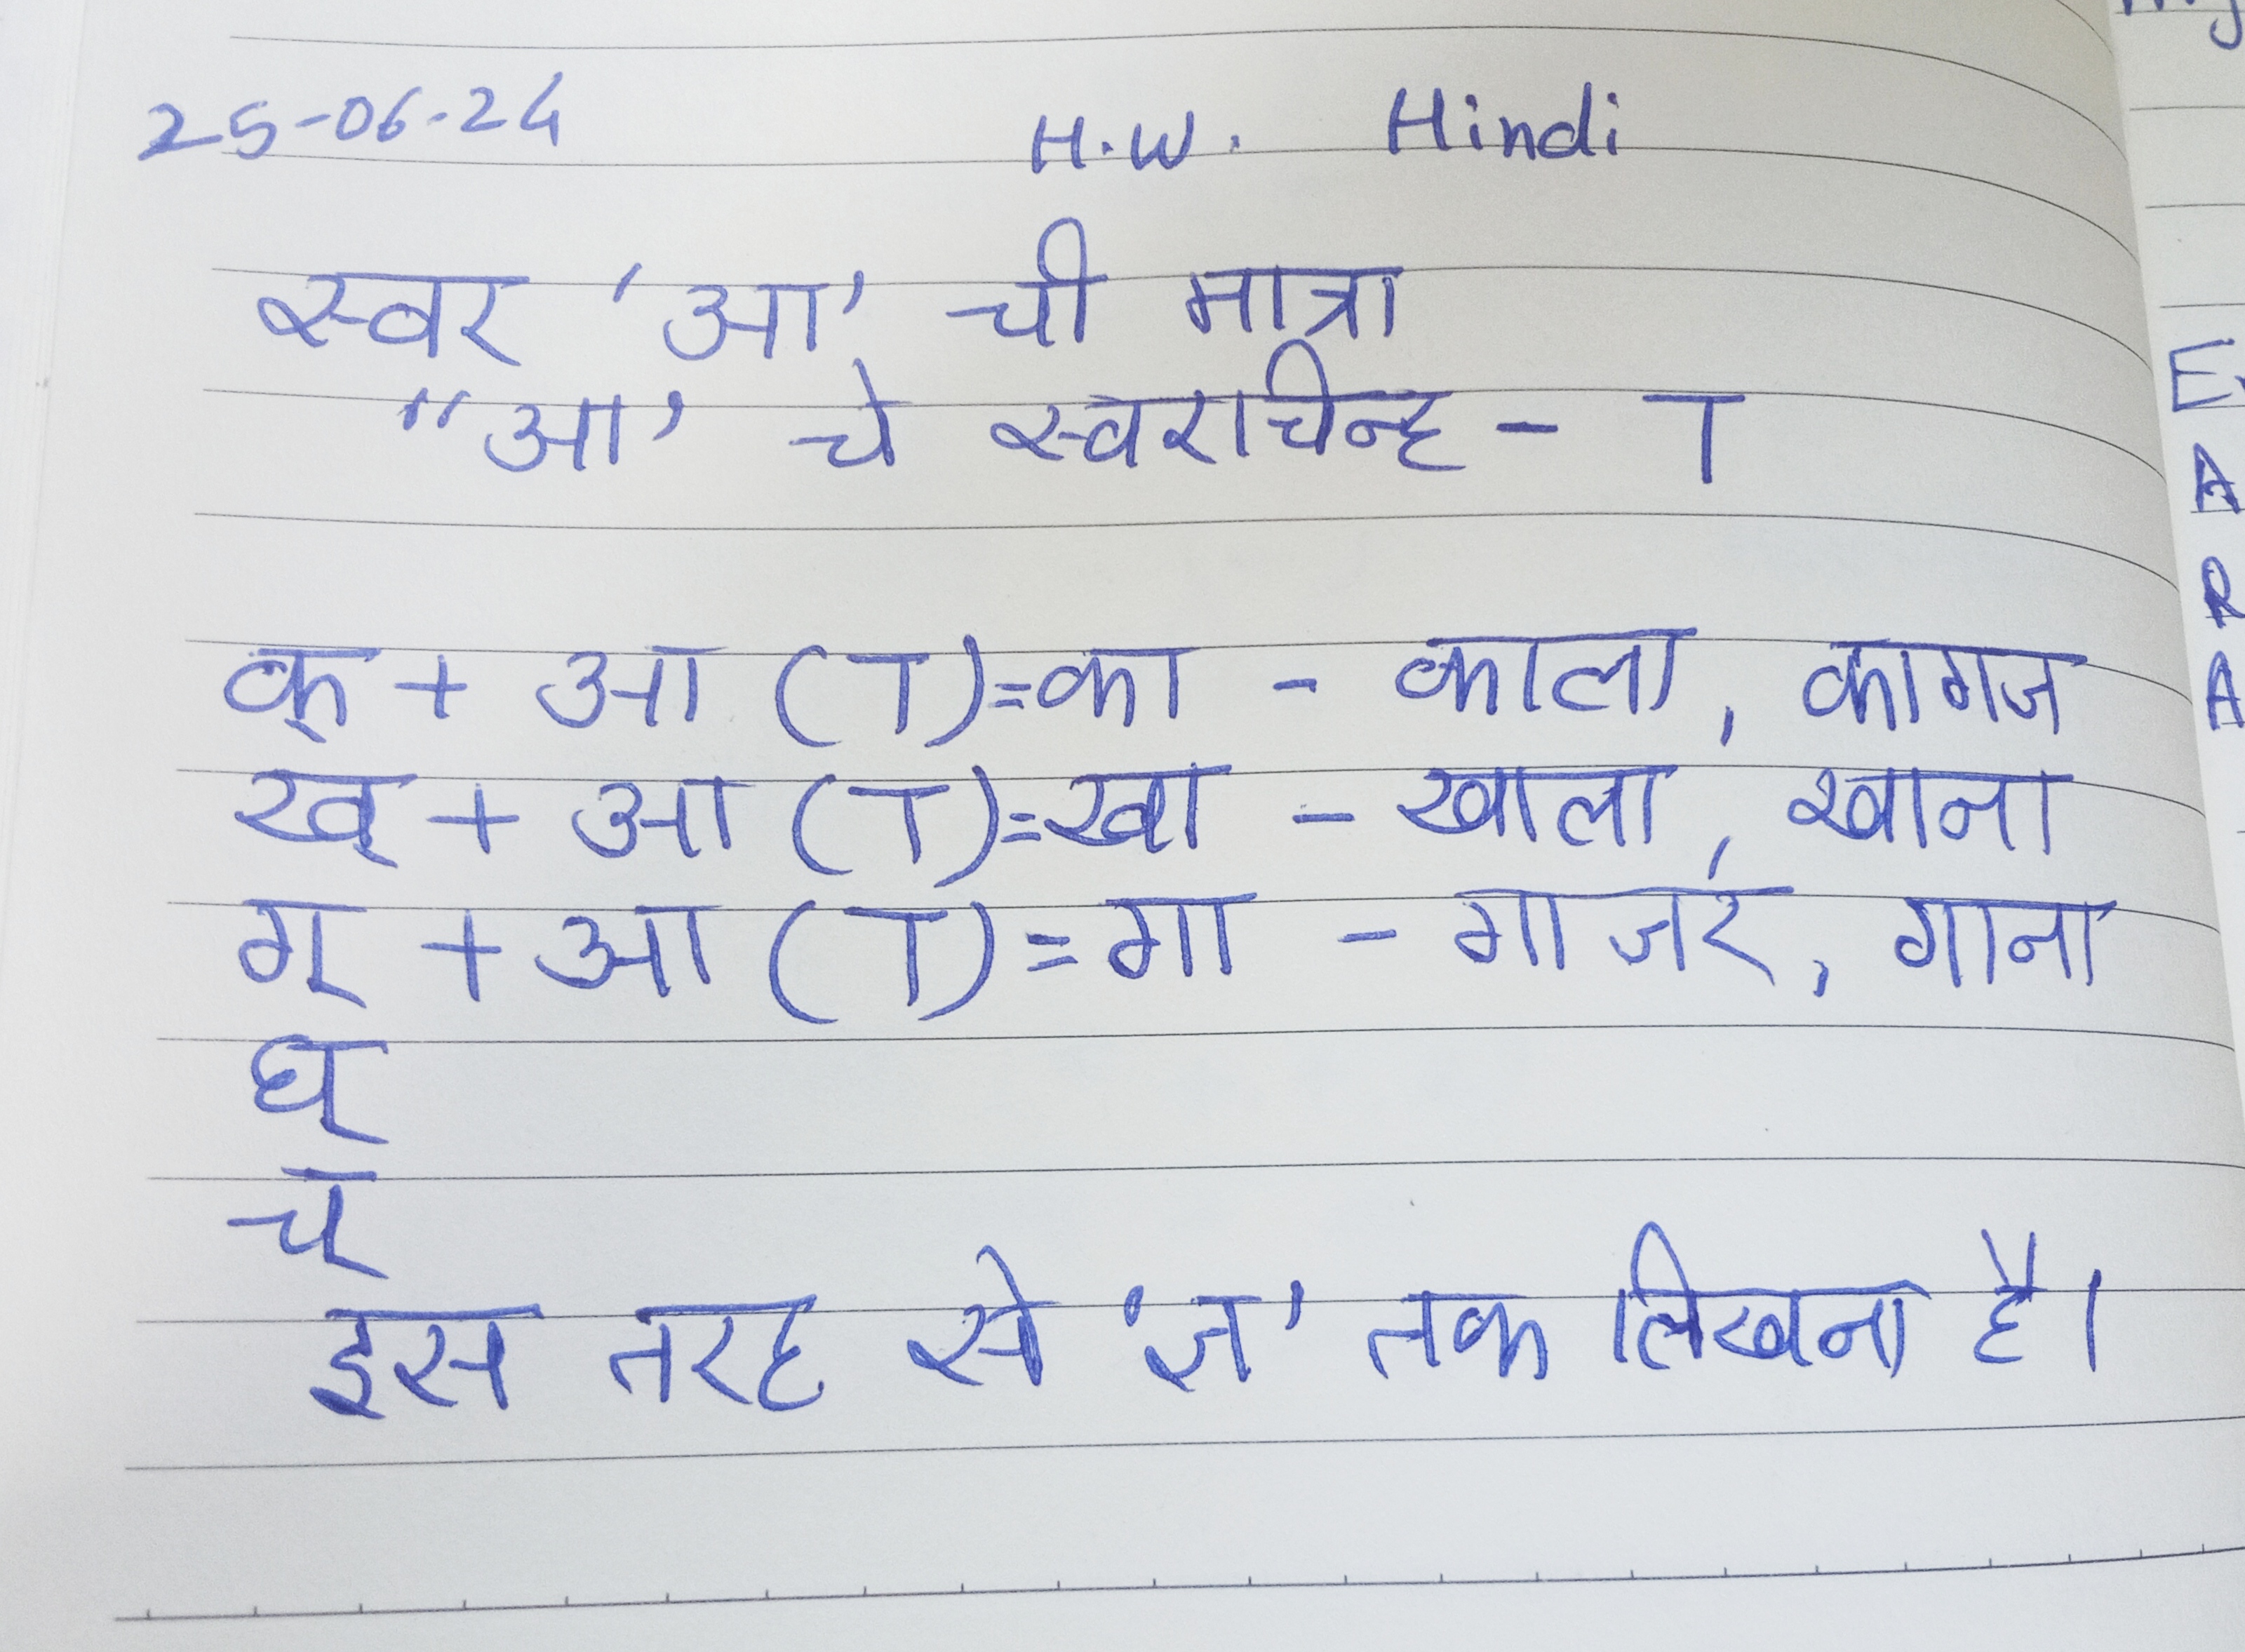 25-06-24 H.W. Hindi
स्वर 'आ' ची मात्रा
"आ' चे स्वरचिन्ह - ा
क् + आ (ा)=का - काला, कागज
ख् + आ (ा)=खा - खाला, खाना
ग् + आ (ा)= गा - गाजर, गाना
घ्
च्
इस तरह से 'ज्ञ' तक लिखना है।
E
A
R
A